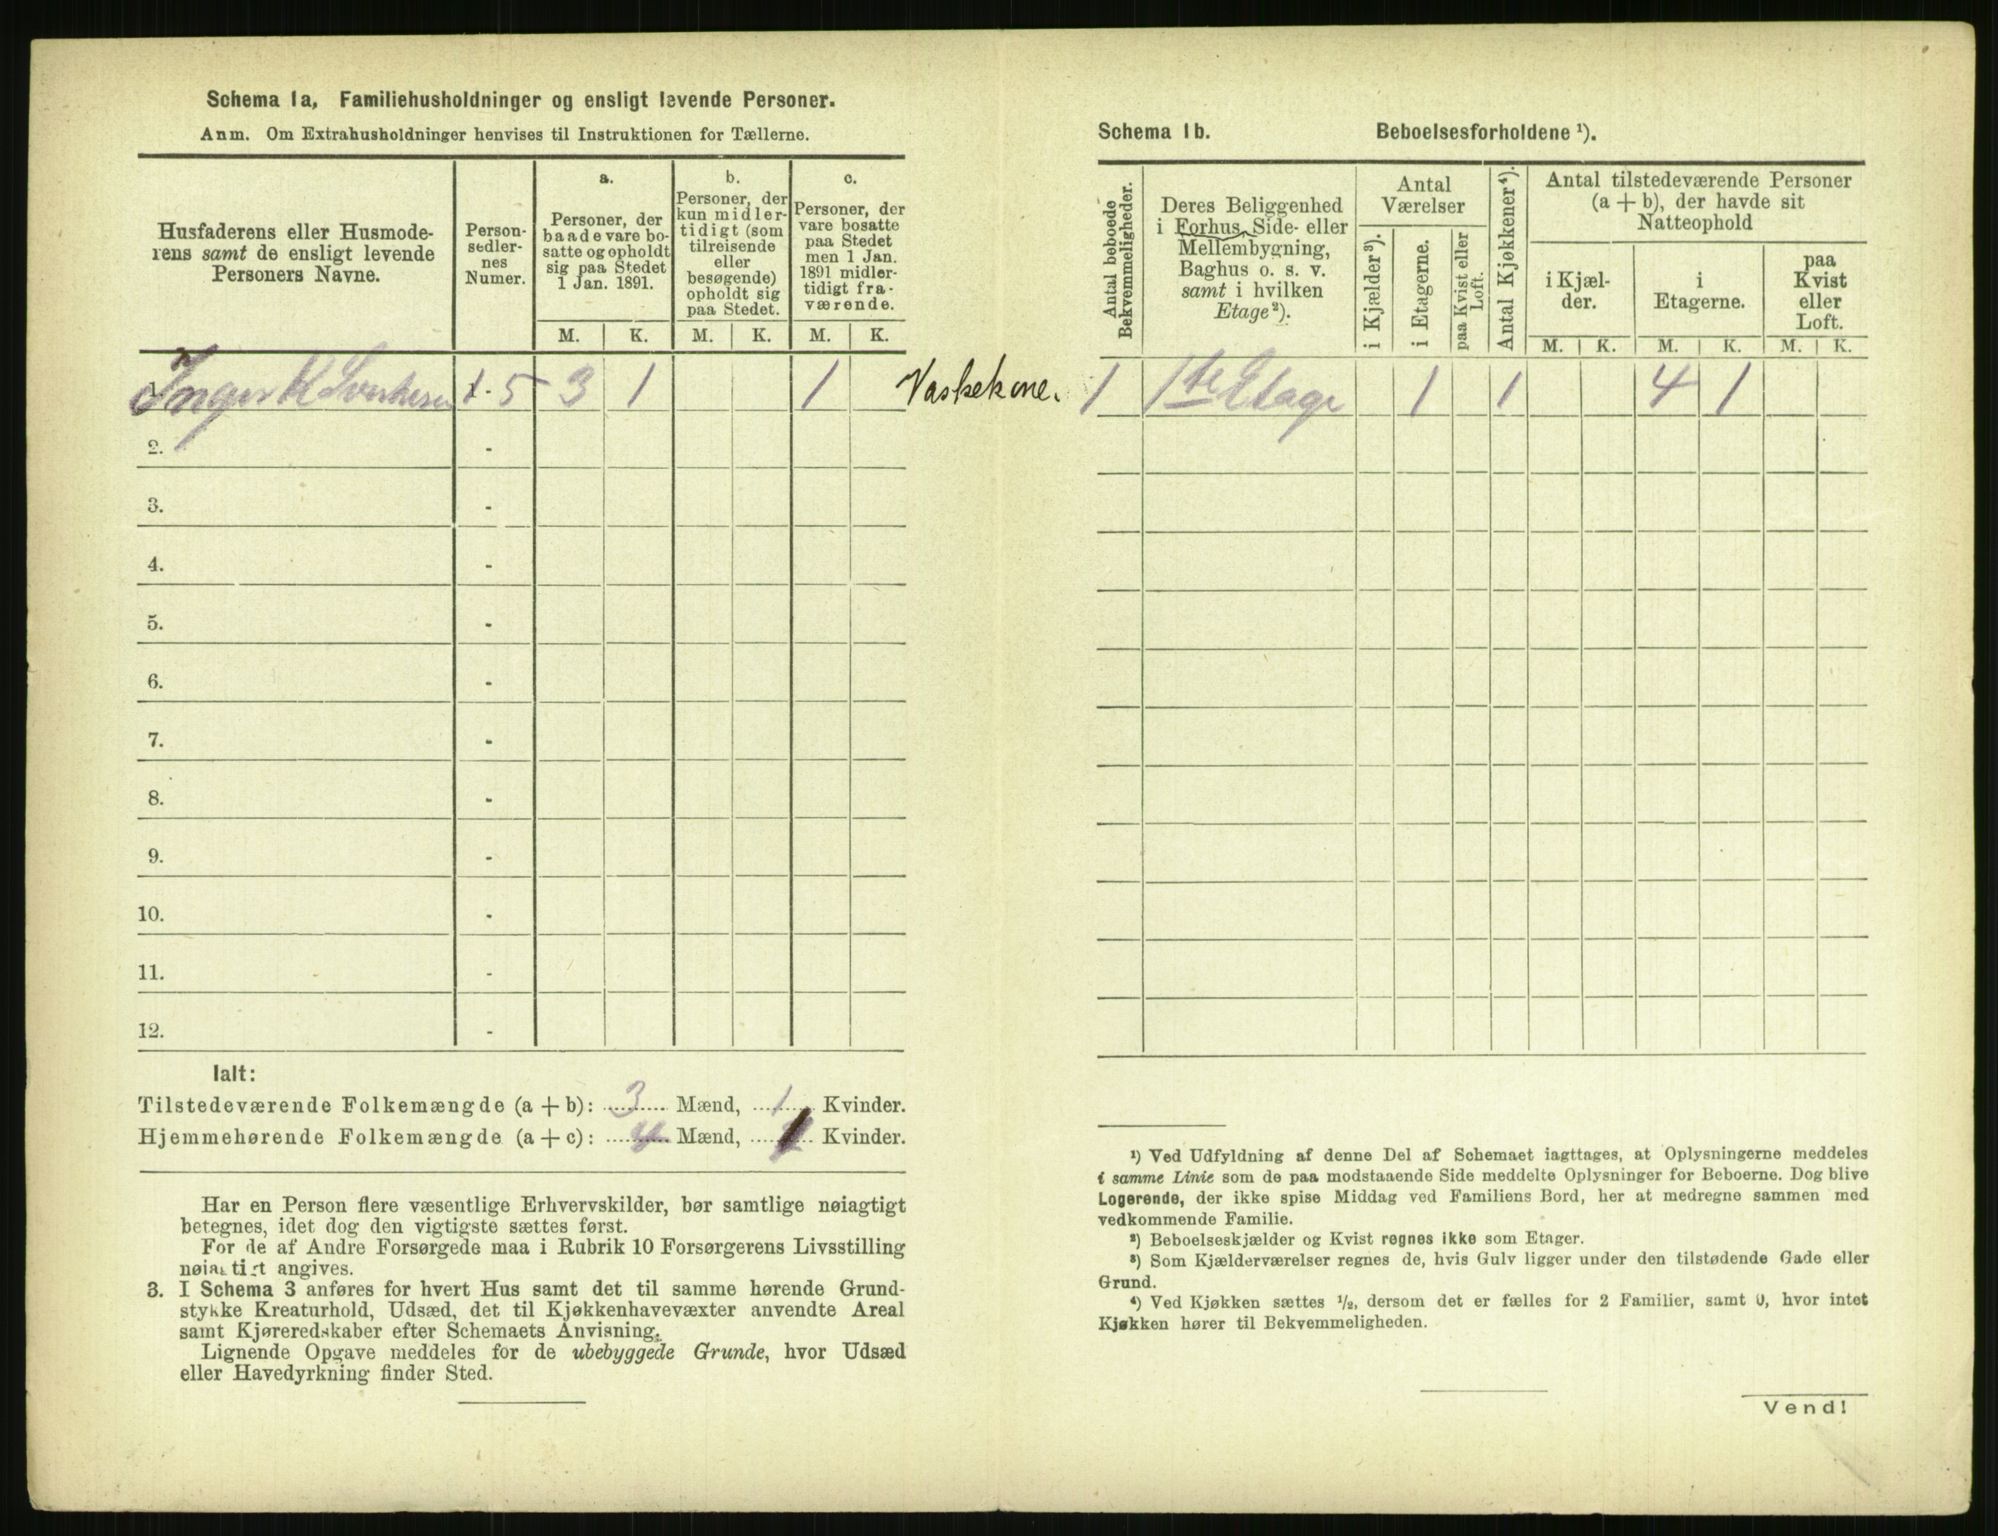 Schema 1a, Familiehusholdninger og ensligt levende Personer.
Anm. Om Extrahusholdninger henvises til Instruktionen for Tællerne.
Husfaderens eller Husmode-
rens samt de ensligt levende
Personers Navne.
Person-
sedler-
nes
Numer.
a.
Personer, der
baade vare bo-
satte og opholdt
sig paa Stedet
1 Jan. 1891.
b.
Personer, der
kun midler-
tidigt (som
tilreisende
eller
besøgende)
opholdt sig
paa Stedet.
c.
Personer, der
vare bosatte
paa Stedet
men 1 Jan.
1891 midler-
tidigt fra-
værende.
M. K. M. K. M. K.
Inger K 1-5 3 1 1 Vaskekone.
2. -
3. -
4. -
5. -
6. -
7. -
8. -
9. -
10. -
11. -
12. -
Ialt:
Tilstedeværende Folkemængde (a + b): 3 Mænd, 1 Kvinder.
Hjemmehørende Folkemængde (a + c): 4 Mænd, 1 Kvinder.
Har en Person flere væsentlige Erhvervskilder, bør samtlige nøiagtigt
betegnes, idet dog den vigtigste sættes først.
For de af Andre Forsørgede maa i Rubrik 10 Forsørgerens Livsstilling
nøiagtigt angives.
3. I Schema 3 anføres for hvert Hus samt det til samme hørende Grund-
stykke Kreaturhold, Udsæd, det til Kjøkkenhavevæxter anvendte Areal
samt Kjøreredskaber efter Schemaets Anvisning.
Lignende Opgave meddeles for de ubebyggede Grunde, hvor Udsæd
eller Havedyrkning finder Sted.
Schema 1b. Beboelsesforholdene ¹).
Antal beboede
Bekvemmeligheder.
Deres Beliggenhed
i Forhus, Side- eller
Mellembygning,
Baghus o. s. v.
samt i hvilken
Etage²).
Antal
Værelser
i Kjælder³).
i Etagerne.
paa Kvist eller
Loft.
Antal Kjøkkener⁴).
Antal tilstedeværende Personer
(a + b), der havde sit
Natteophold
i Kjæl-
der.
i
Etagerne.
paa
Kvist
eller
Loft.
M. K. M. K. M. K.
1 1ste Etage 1 1 4 1
¹) Ved Udfyldning af denne Del af Schemaet iagttages, at Oplysningerne meddeles
i samme Linie som de paa modstaaende Side meddelte Oplysninger for Beboerne. Dog blive
Logerende, der ikke spise Middag ved Familiens Bord, her at medregne sammen med
vedkommende Familie.
²) Beboelseskjælder og Kvist regnes ikke som Etager.
³) Som Kjælderværelser regnes de, hvis Gulv ligger under den tilstødende Gade eller
Grund.
⁴) Ved Kjøkken sættes ¹/₂, dersom det er fælles for 2 Familier, samt 0, hvor intet
Kjøkken hører til Bekvemmeligheden.
Vend!